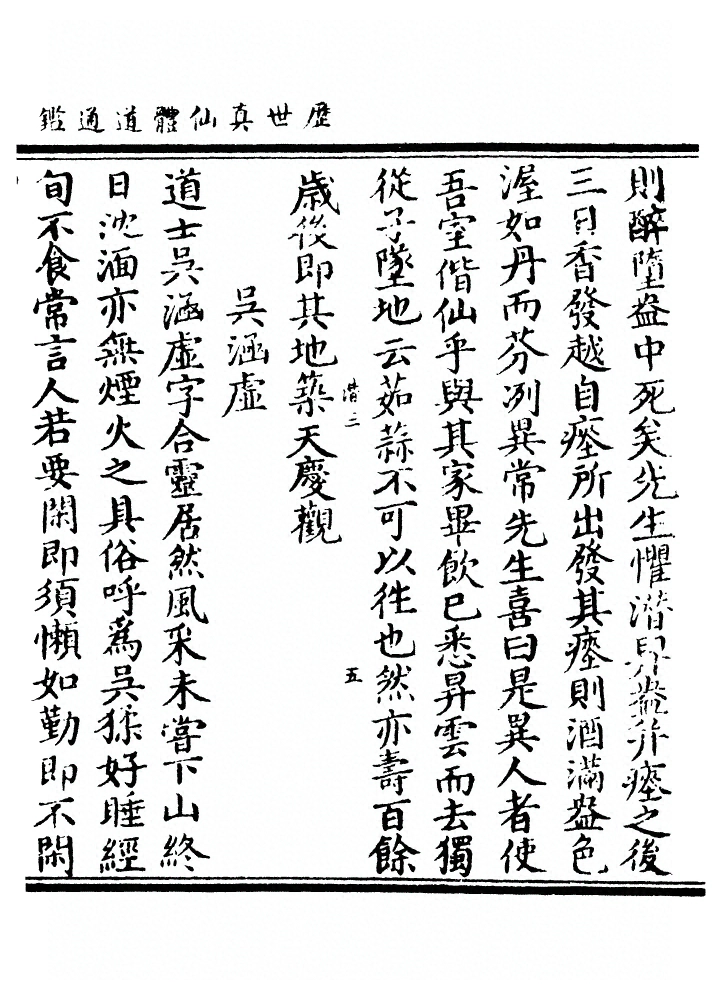 歷世真仙體道通鑑
則醉墮盎中死矣先生懼潛舁盎并瘞之後
三日香發越自瘞所出發其瘞則酒滿盎色
渥如丹而芬冽異常先生喜曰是異人者使
吾室偕仙乎與其家畢飲已悉昇雲而去獨
從子墜地云茹蒜不可以徃也然亦壽百餘
歳後即其地築天慶觀
潛二
五
吳涵虛
道士吳涵虛字合靈居然風采未嘗下山終
日沈湎亦無煙火之具俗呼為吳猱好睡經
旬不食常言人若要閑即須懶如勤即不閑